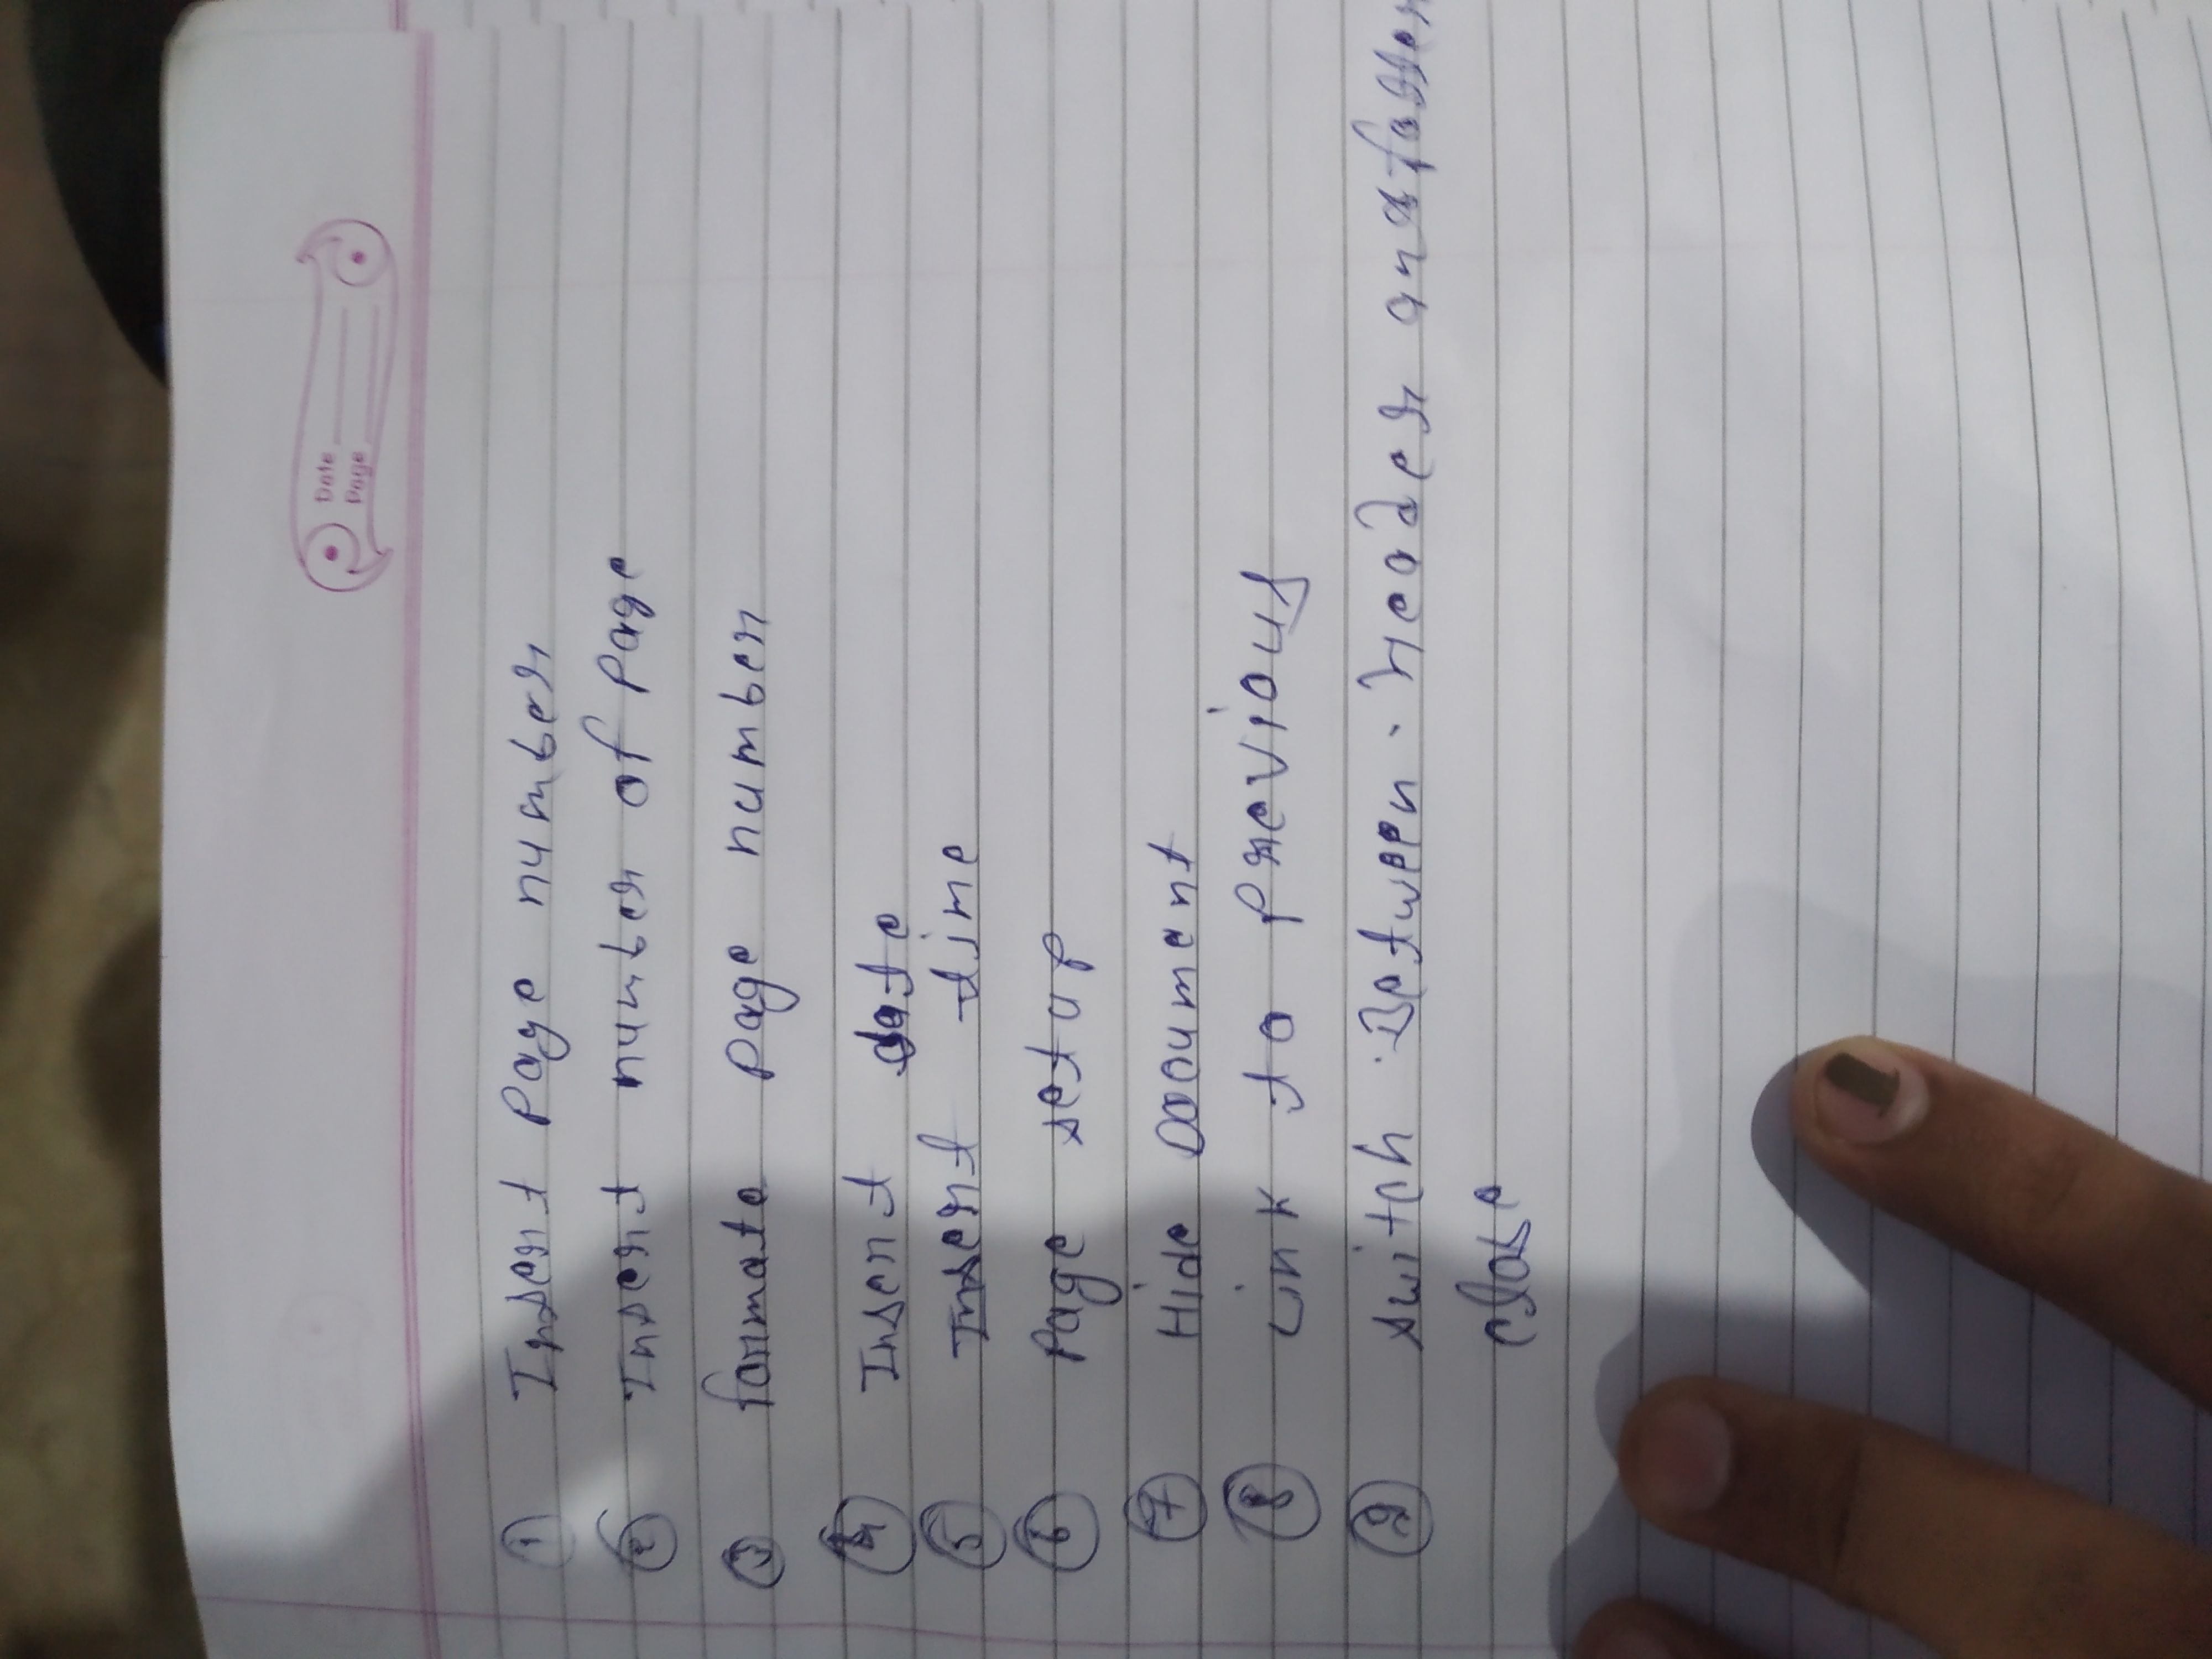 Date
Page
① Insert Page number
② Insert number of Page
③ formate Page number
④ Insert date
⑤ Insert time
⑥ Page setup
⑦ Hide Document
⑧ Link to previous
⑨ switch Between Header and
close